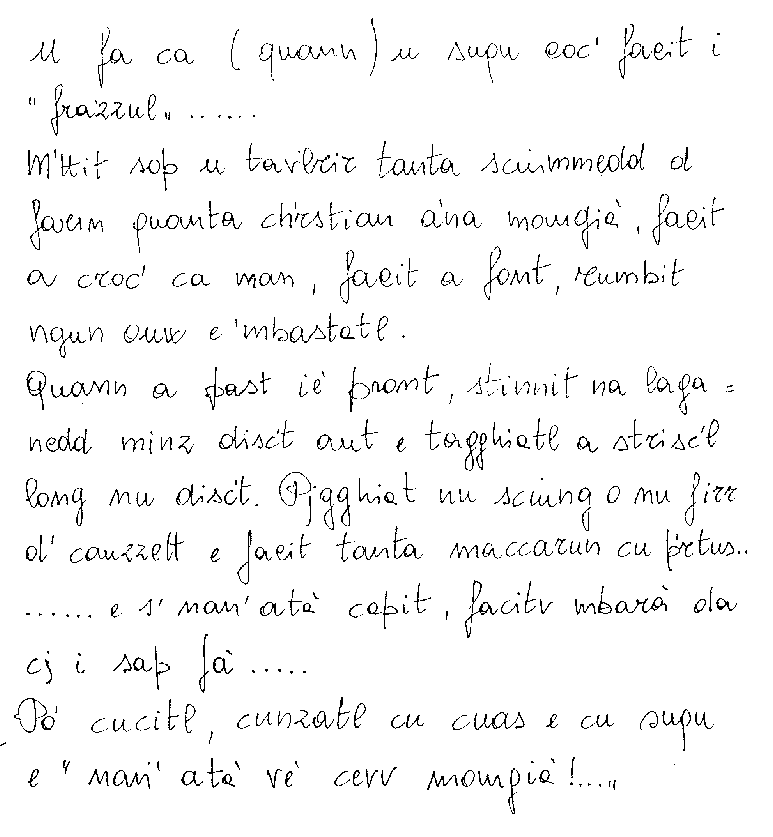 U fa ca (quann) u sugu coc' facit i
"frazzul" ......
M'ttit sop u tav'lrir tanta scuimmedd d
farin quanta chr'stian àna mangià, facit
a croc' ca man, facit a font, rumbit
ngun ouv e 'mbastatl.
Quann a past iè pront, stinnit na laga=
nedd minz disc't aut e tagghiatl a strisc'l
long nu disc't. Pjgghiat nu sciung o nu firr
d' cauzzett e facit tanta maccarun cu p'rtus..
...... e s' nan' atà capit, facitv mbarà da
cj i sap fà .....
Pò cucitl, cunzatl cu cuas e cu sugu
e " nan' atà vè cerv mangià!...."